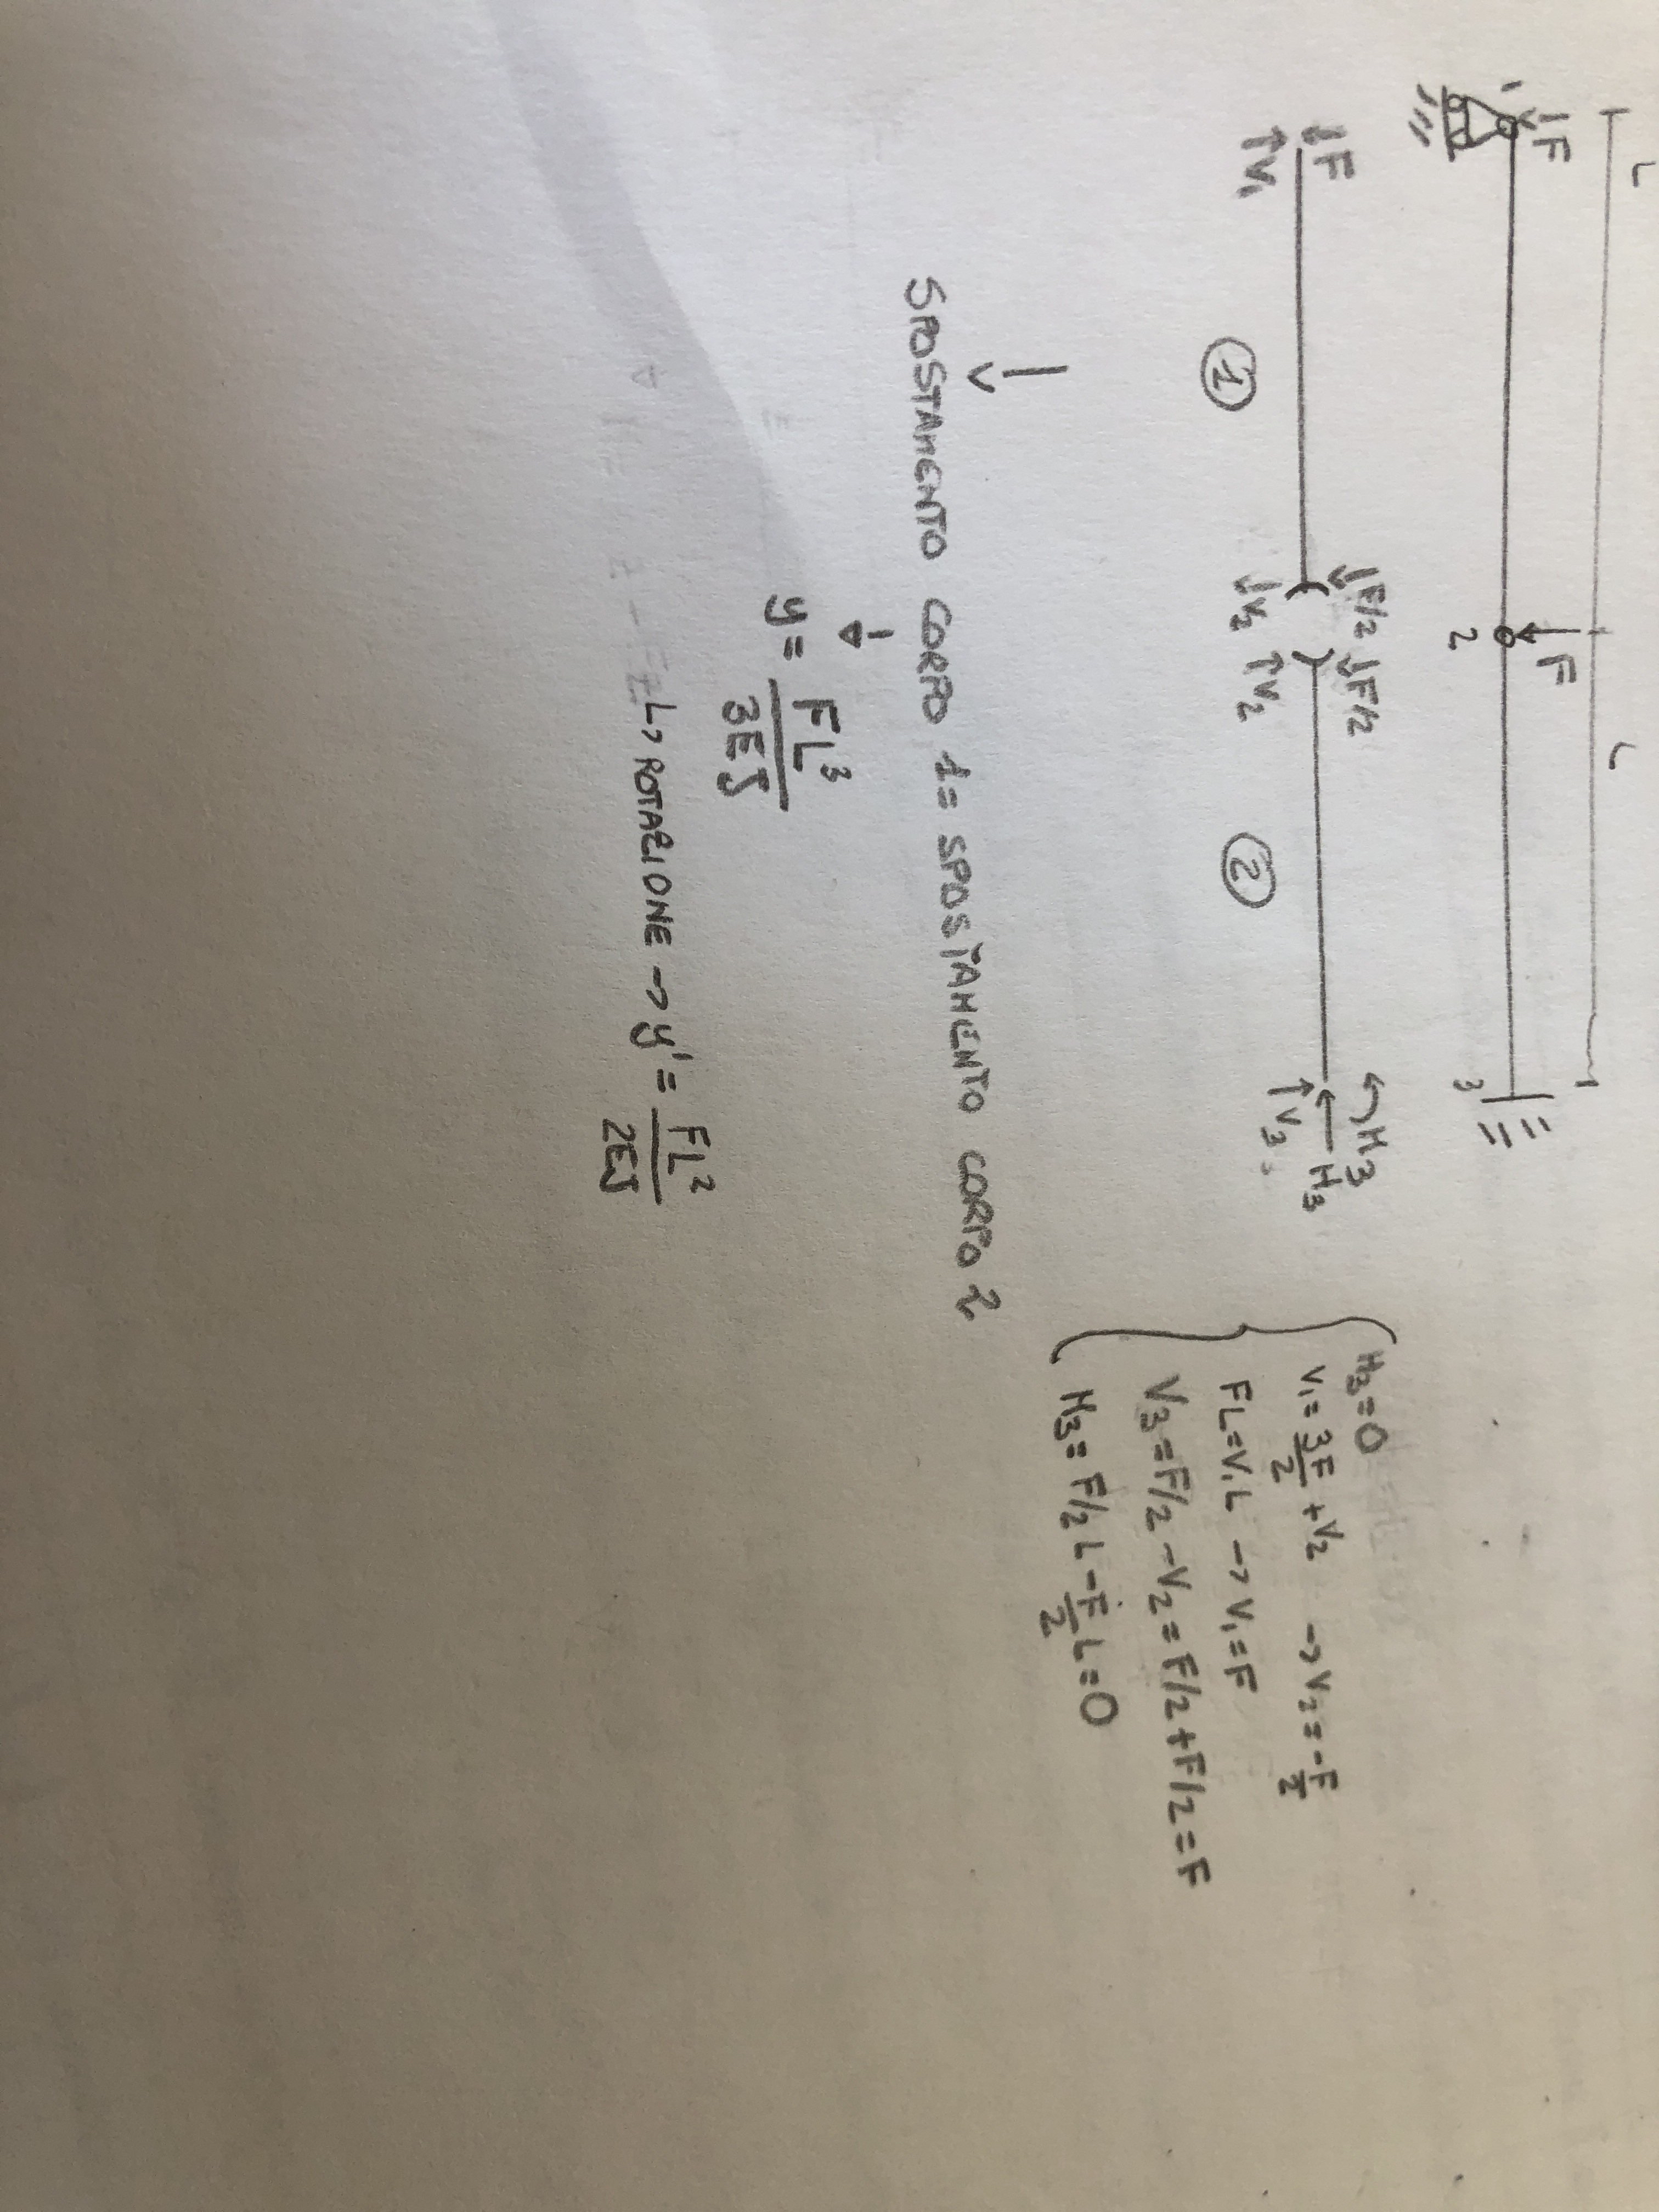 L L
F F
1 2 3
F F/2 F/2 M3
H3
V1 V2 V2 V3
1 2
H3=0
V1= 3F/2 +V2 -> V2= -F/2
FL=V1L -> V1=F
V3=F/2 -V2= F/2+F/2=F
M3= F/2 L -F/2 L=0
SPOSTAMENTO CORPO 1= SPOSTAMENTO CORPO 2
y= FL³/3EJ
L> ROTAZIONE -> y'= FL²/2EJ